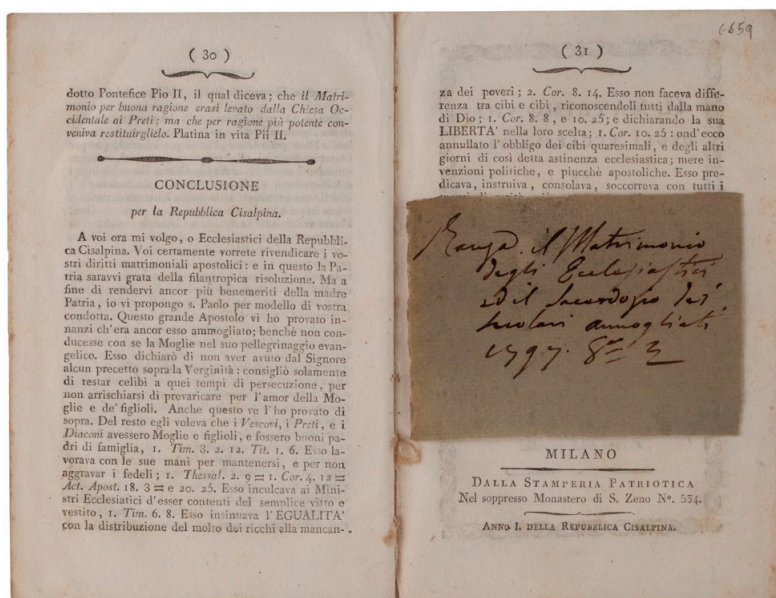 ( 30 )
dotto Pontefice Pio II, il qual diceva; che il Matri-
monio per buona ragione erasi levato dalla Chiesa Oc-
cidentale ai Preti: ma che per ragione più potente con-
veniva restituirglielo. Platina in vita Pii II.
CONCLUSIONE
per la Repubblica Cisalpina.
A voi ora mi volgo, o Ecclesiastici della Repubbli-
ca Cisalpina. Voi certamente vorrete rivendicare i vo-
stri diritti matrimoniali apostolici: e in questo la Pa-
tria saravvi grata della filantropica risoluzione. Ma a
fine di rendervi ancor più benemeriti della madre
Patria, io vi propongo s. Paolo per modello di vostra
condotta. Questo grande Apostolo vi ho provato in-
nanzi ch'era ancor esso ammogliato; benchè non con-
ducesse con se la Moglie nel suo pellegrinaggio evan-
gelico. Esso dichiarò di non aver avuto dal Signore
alcun precetto sopra la Verginità: consigliò solamente
di restar celibi a quei tempi di persecuzione, per
non arrischiarsi di prevaricare per l'amor della Mo-
glie e de' figlioli. Anche questo ve l'ho provato di
sopra. Del resto egli voleva che i Vescovi, i Preti, e i
Diaconi avessero Moglie e figlioli, e fossero buoni pa-
dri di famiglia, 1. Tim. 3. 2. 12. Tit. 1. 6. Esso la-
vorava con le sue mani per mantenersi, e per non
aggravar i fedeli; 1. Thessal. 2. 9 = 1. Cor. 4. 12 =
Act. Apost. 18. 3 = e 20. 25. Esso inculcava ai Mini-
stri Ecclesiastici d'esser contenti del semplice vitto e
vestito, 1. Tim. 6. 8. Esso insinuava l'EGUALITA'
con la distribuzione del molto dei ricchi alla mancan-
6659
( 31 )
za dei poveri; 2. Cor. 8. 14. Esso non faceva diffe-
renza tra cibi e cibi, riconoscendoli tutti dalla mano
di Dio; 1. Cor. 8. 8, e 10. 25; e dichiarando la sua
LIBERTA' nella loro scelta; 1. Cor. 10. 25: ond'ecco
annullato l'obbligo dei cibi quaresimali, e degli altri
giorni di così detta astinenza ecclesiastica; mere in-
venzioni politiche, e piucchè apostoliche. Esso pre-
dicava, instruiva, consolava, soccorreva con tutti i
Ranza. il Matrimonio
degli Ecclesiastici
ed il Sacerdozio dei
Secolari ammogliati
1797. 8°
MILANO
DALLA STAMPERIA PATRIOTICA
Nel soppresso Monastero di S. Zeno N°. 534.
ANNO I. DELLA REPUBBLICA CISALPINA.